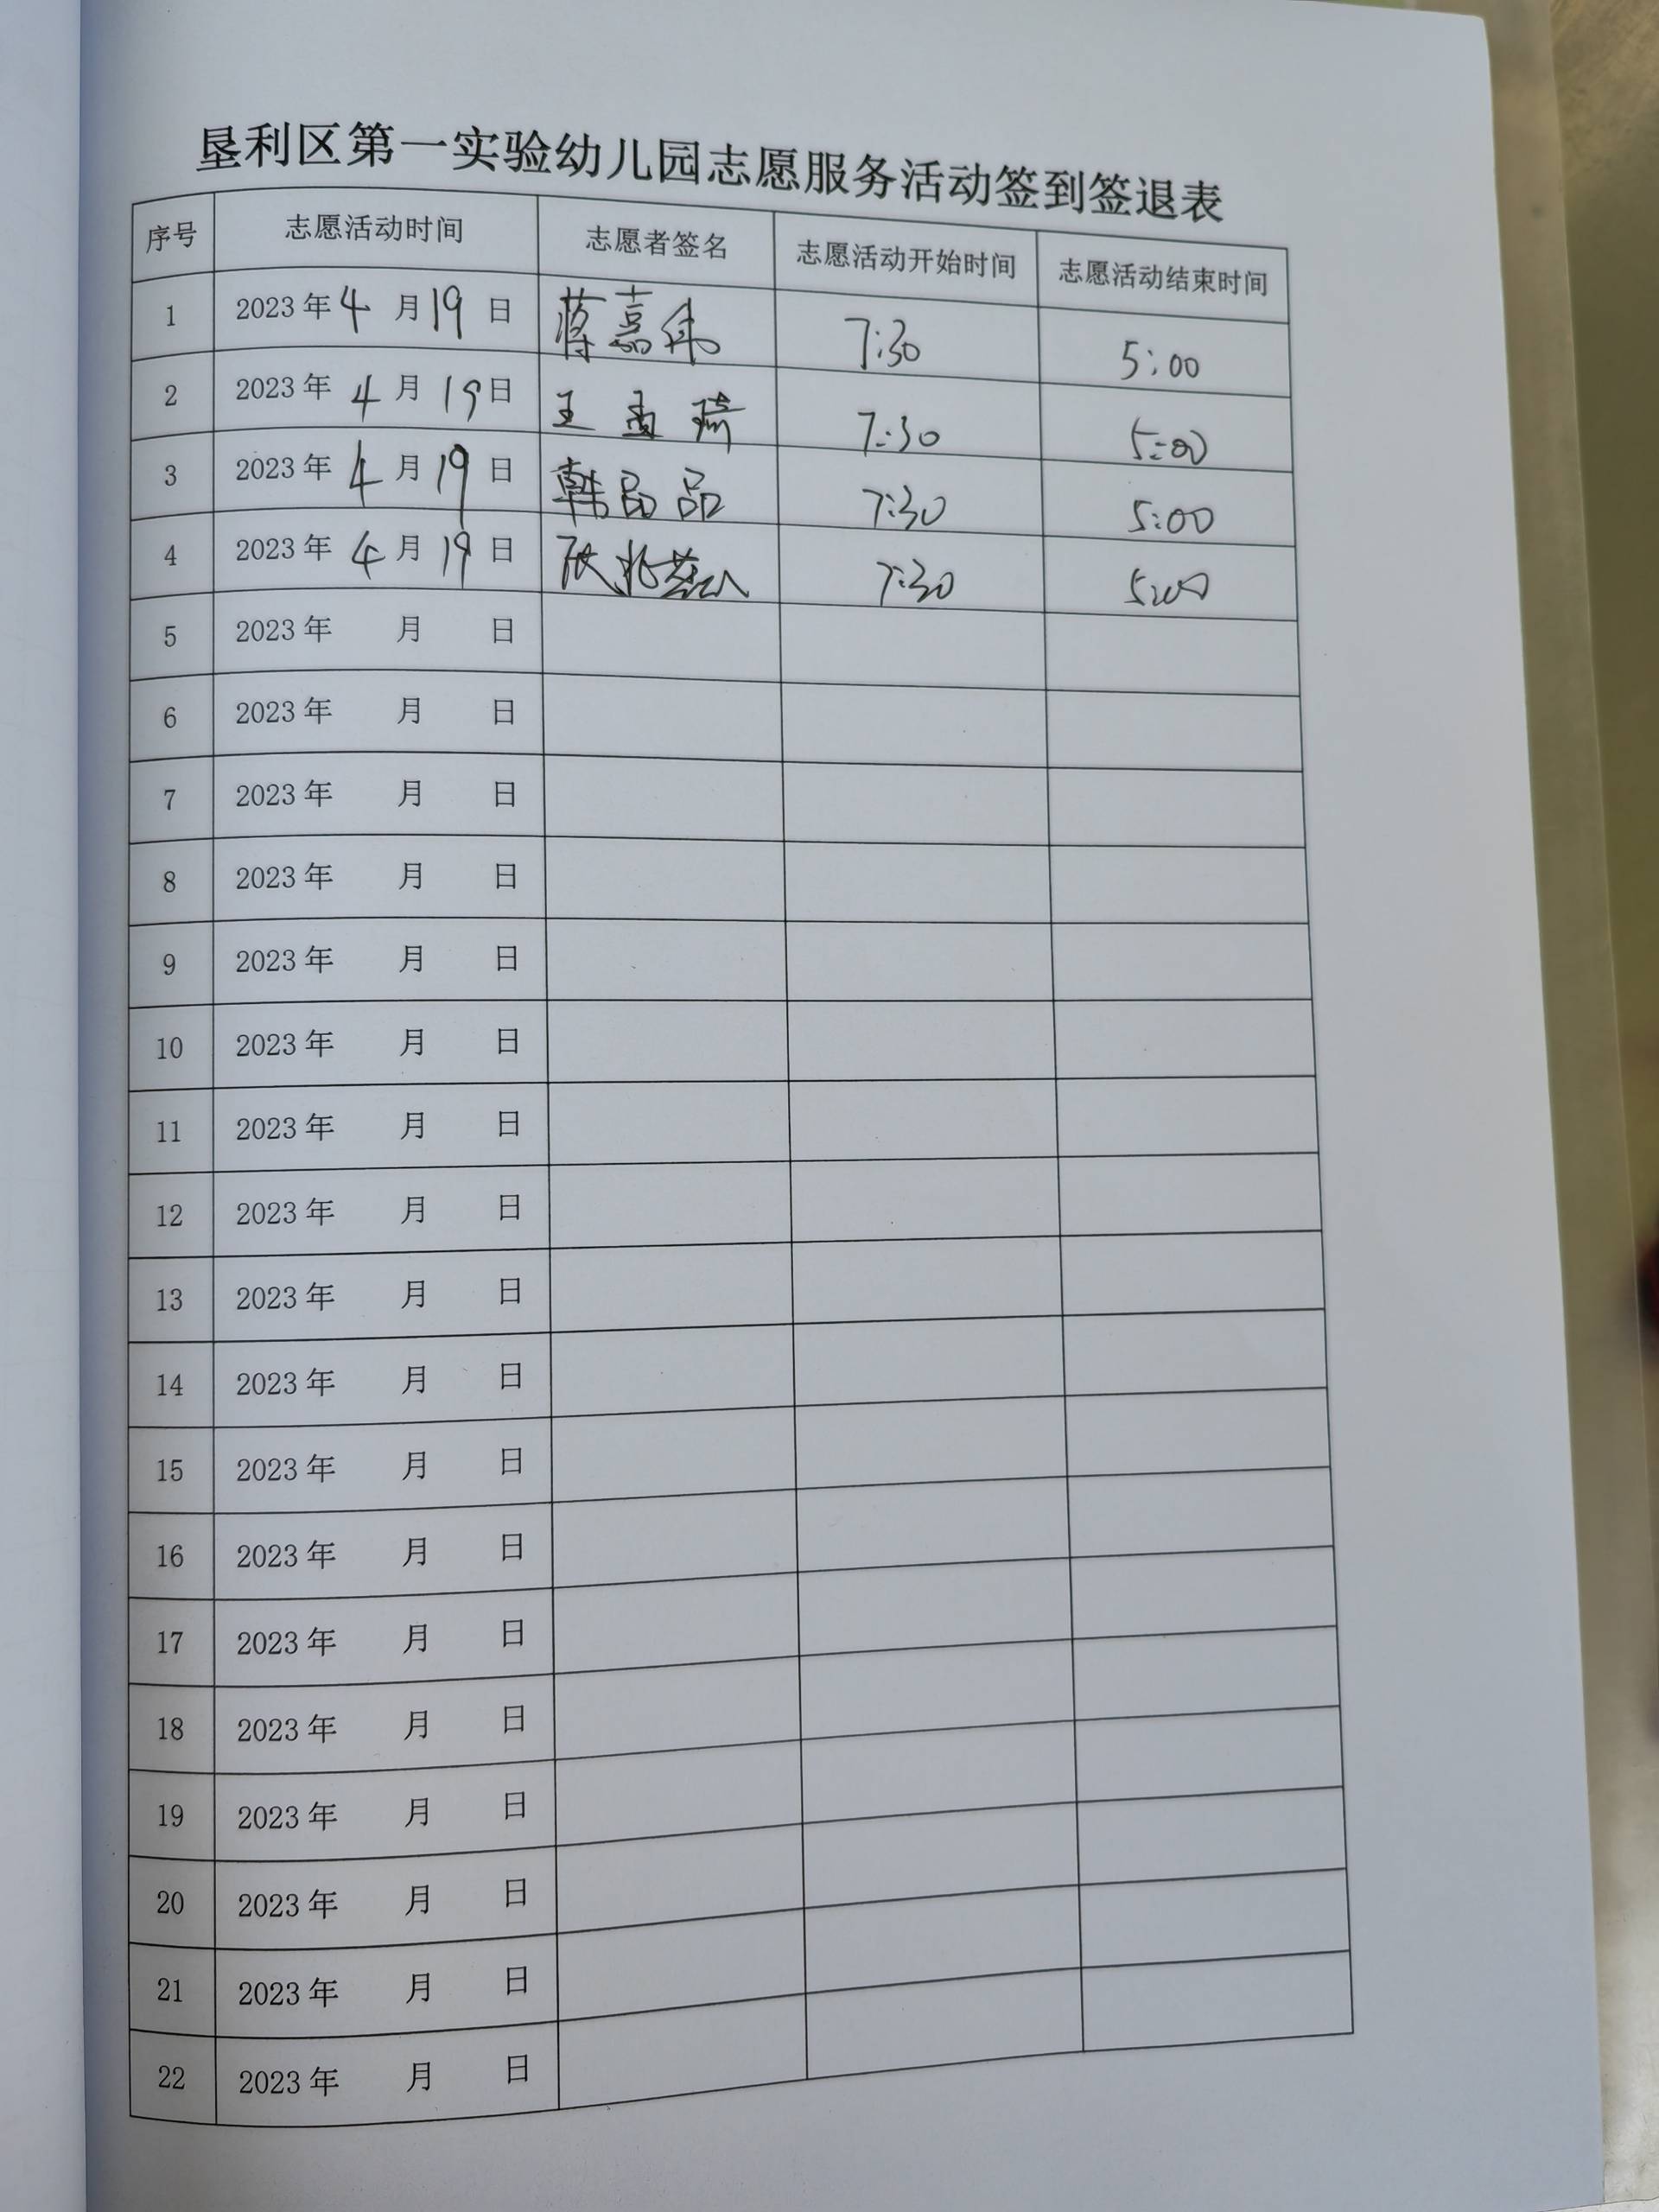 垦利区第一实验幼儿园志愿服务活动签到签退表
序号 志愿活动时间 志愿者签名 志愿活动开始时间 志愿活动结束时间
1 2023年4月19日 蒋嘉伟 7:30 5:00
2 2023年4月19日 王孟琦 7:30 5:00
3 2023年4月19日 韩品品 7:30 5:00
4 2023年4月19日 7:30 5:00
5 2023年 月 日
6 2023年 月 日
7 2023年 月 日
8 2023年 月 日
9 2023年 月 日
10 2023年 月 日
11 2023年 月 日
12 2023年 月 日
13 2023年 月 日
14 2023年 月 日
15 2023年 月 日
16 2023年 月 日
17 2023年 月 日
18 2023年 月 日
19 2023年 月 日
20 2023年 月 日
21 2023年 月 日
22 2023年 月 日